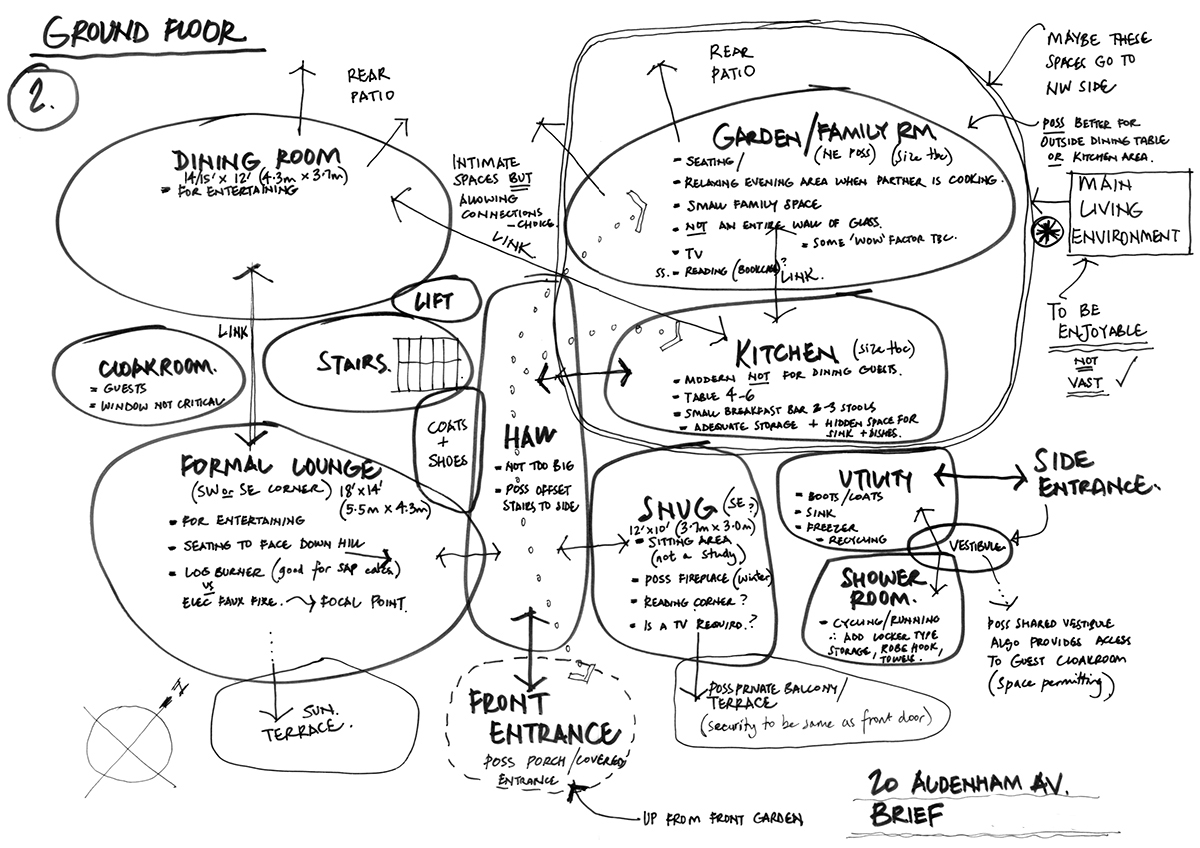 GROUND FLOOR
2.
REAR
PATIO
DINING ROOM
14/15' x 12' (4.3m x 3.7m)
= FOR ENTERTAINING
INTIMATE
SPACES BUT
ALLOWING
CONNECTIONS
- CHOICE.
LINK
REAR
PATIO
GARDEN/FAMILY RM
(NE POSS) (size tbc)
- SEATING/
- RELAXING EVENING AREA WHEN PARTNER IS COOKING.
- SMALL FAMILY SPACE
- NOT AN ENTIRE WALL OF GLASS.
= SOME 'WOW' FACTOR TBC.
- TV
SS. - READING (BOOKCASE)?
LINK.
MAYBE THESE
SPACES GO TO
NW SIDE
POSS BETTER FOR
OUTSIDE DINING TABLE
OR KITCHEN AREA.
MAIN
LIVING
ENVIRONMENT
TO BE
ENJOYABLE
NOT
VAST ✓
LIFT
LINK
CLOAKROOM.
= GUESTS
= WINDOW NOT CRITICAL
STAIRS.
COATS
+
SHOES
HALL
- NOT TOO BIG
- POSS OFFSET
STAIRS TO SIDE
KITCHEN (size tbc)
- MODERN NOT FOR DINING GUESTS.
- TABLE 4-6
- SMALL BREAKFAST BAR 2-3 STOOLS
- ADEQUATE STORAGE + HIDDEN SPACE FOR
SINK + DISHES.
FORMAL LOUNGE
(SW or SE CORNER) 18' x 14'
(5.5m x 4.3m)
- FOR ENTERTAINING
- SEATING TO FACE DOWN HILL
- LOG BURNER (good for SAP calcs)
VS
ELEC FAUX FIRE. → FOCAL POINT.
SNUG (SE?)
12'x10' (3.7m x 3.0m)
- SITTING AREA
(not a study)
- POSS FIREPLACE (winter)
- READING CORNER?
- IS A TV REQUIRD.?
UTILITY
- BOOTS/COATS
- SINK
- FREEZER
- RECYCLING
SIDE
ENTRANCE.
VESTIBULE
SHOWER
ROOM.
- CYCLING/RUNNING
∴ ADD LOCKER TYPE
STORAGE, ROBE HOOK,
TOWELS.
POSS SHARED VESTIBULE
ALSO PROVIDES ACCESS
TO GUEST CLOAKROOM
(Space permitting)
SUN.
TERRACE.
FRONT
ENTRANCE
POSS PORCH/COVERED
ENTRANCE
UP FROM FRONT GARDEN
POSS PRIVATE BALCONY/
TERRACE
(security to be same as front door)
20 AUDENHAM AV.
BRIEF